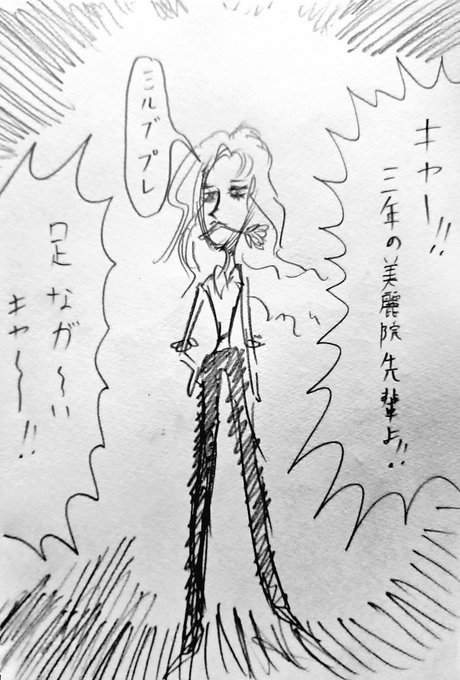 キャー!!
三年の美麗院先輩よ!!
ミルブプレ
足ながーい
キャ〜〜!!